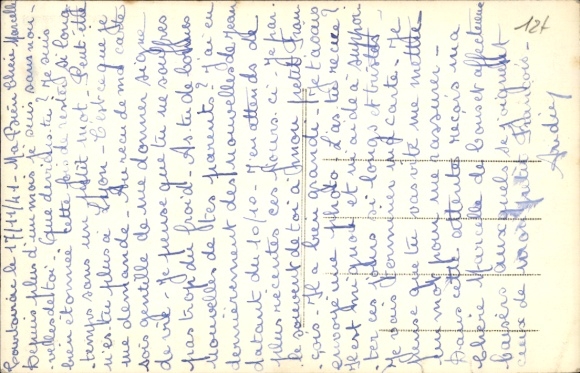 le 17/11/41 - Ma Bien Chère Marcelle
Depuis plus d'un mois je suis sans nou-
velles de toi. Que deviens-tu? Je suis
bien étonnée cette fois de rester si long-
temps sans un petit mot. Peut-être
n'es tu plus à Lyon - C'est ce que je
me demande - Au reçu de ma carte
sois gentille de me donner signe
de vie. Je pense que tu ne souffres
pas trop du froid. As-tu de bonnes
nouvelles de tes parents? J'ai eu
dernièrement des nouvelles de Jean
datant du 10/10. J'en attends de
plus récentes ces jours-ci - Je par-
le souvent de toi à mon petit Fran
çois - Il a bien grandi. Je t'avais
envoyé une photo. L'as-tu reçue?
Il est mignon et m'aide à suppor
ter ces jours si longs et tristes.
Je vais terminer ma carte - Je
pense que tu vas vite me mettre
un mot pour me rassurer -
Dans cette attente reçois ma
Chère Marcelle de bons et affectueux
baisers auxquels se joignent
ceux de mon petit François -
Andrée
127